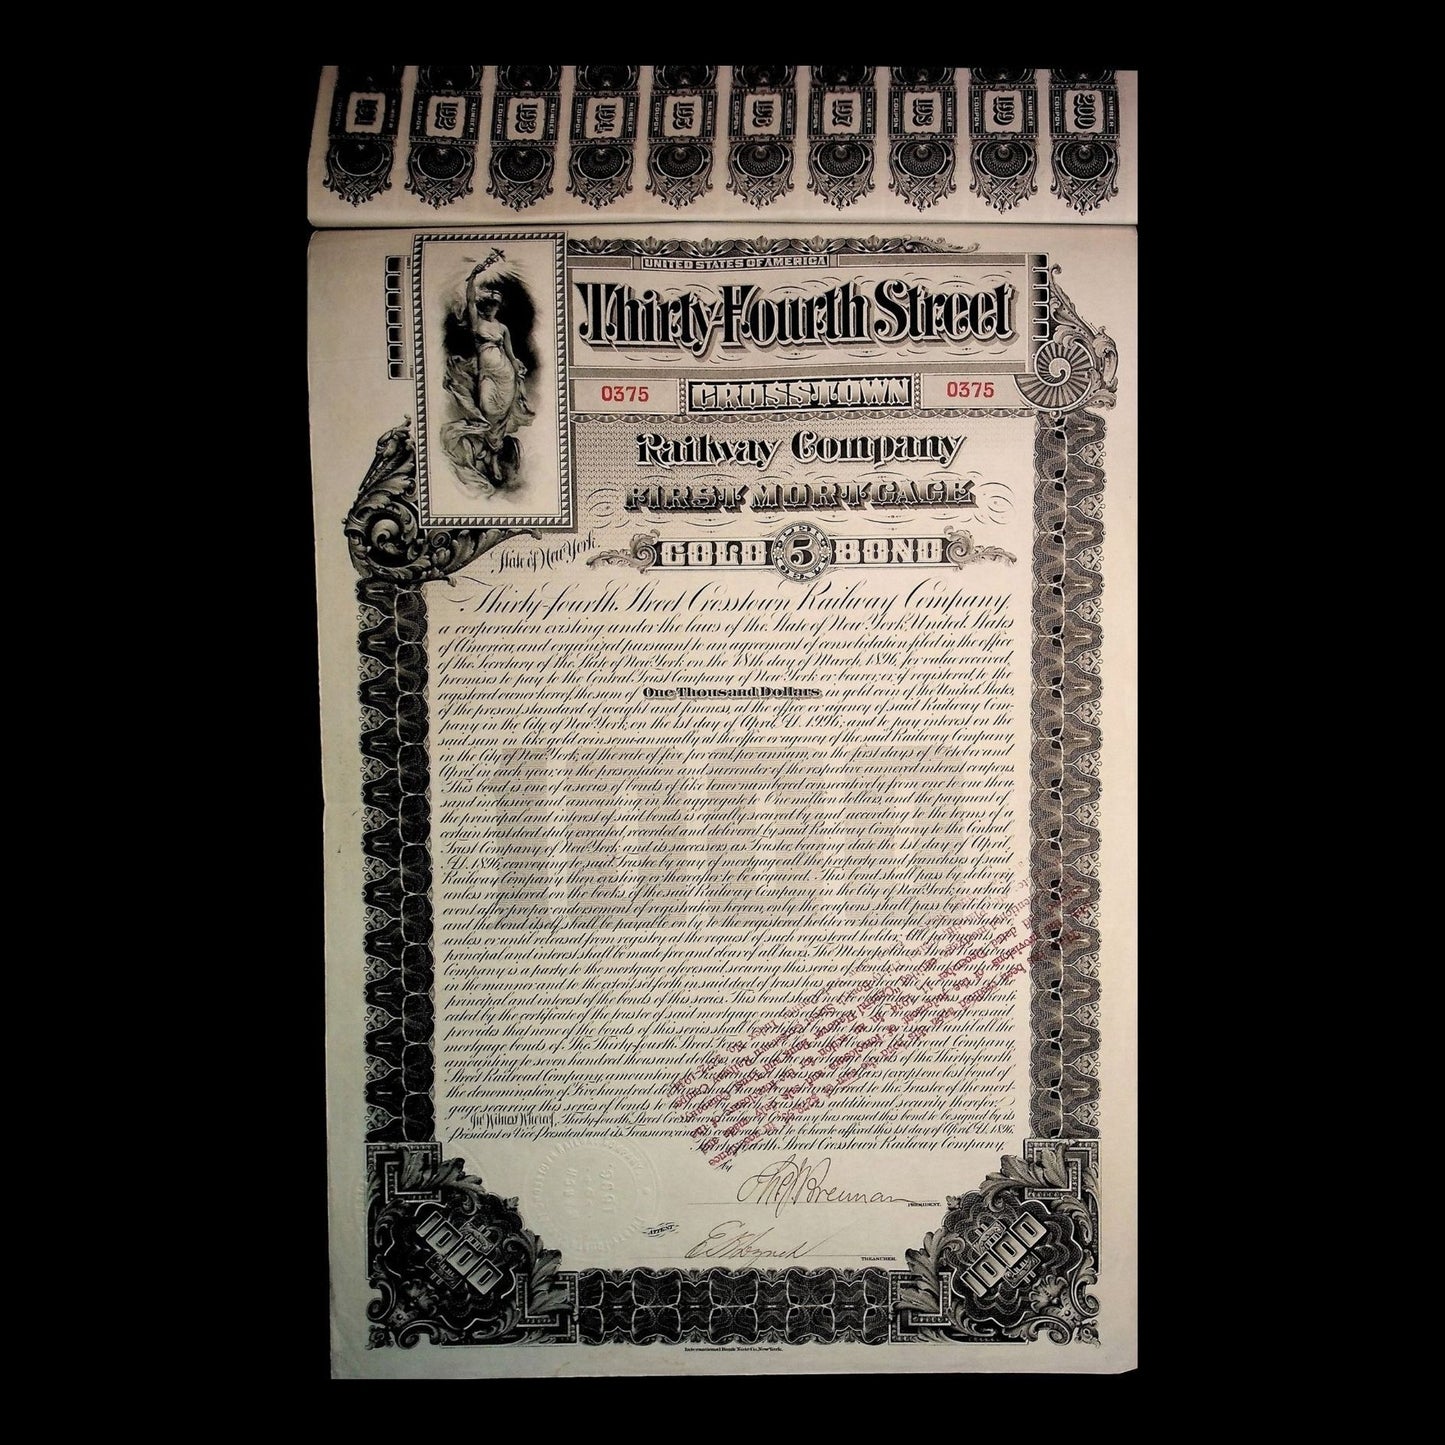 191 192 193 194 195 196 197 198 199 200
COUPON NUMBER COUPON NUMBER COUPON NUMBER COUPON NUMBER COUPON NUMBER COUPON NUMBER COUPON NUMBER COUPON NUMBER COUPON NUMBER COUPON NUMBER
UNITED STATES OF AMERICA
Thirty-Fourth Street
0375 CROSSTOWN 0375
Railway Company
FIRST MORTGAGE
State of New York.
GOLD 5 PER CENT BOND
Thirty-fourth Street Crosstown Railway Company,
a corporation existing under the laws of the State of New York, United States
of America, and organized pursuant to an agreement of consolidation filed in the office
of the Secretary of the State of New York on the 18th day of March, 1896, for value received,
promises to pay to the Central Trust Company of New York or bearer, or, if registered, to the
registered owner hereof, the sum of One Thousand Dollars, in gold coin of the United States,
of the present standard of weight and fineness, at the office or agency of said Railway Com-
pany in the City of New York, on the 1st day of April, A.D. 1996; and to pay interest on the
said sum in like gold coin semi-annually at the office or agency of the said Railway Company
in the City of New York, at the rate of five per cent per annum, on the first days of October and
April in each year, on the presentation and surrender of the respective annexed interest coupons.
This bond is one of a series of bonds of like tenor numbered consecutively from one to one thou-
sand inclusive and amounting in the aggregate to One million dollars, and the payment of
the principal and interest of said bonds is equally secured by and according to the terms of a
certain trust deed duly executed, recorded and delivered by said Railway Company to the Central
Trust Company of New York and its successors as Trustee, bearing date the 1st day of April,
A.D. 1896, conveying to said Trustee by way of mortgage all the property and franchises of said
Railway Company then existing or thereafter to be acquired. This bond shall pass by delivery
unless registered on the books of the said Railway Company in the City of New York, in which
event after proper endorsement of registration hereon, only the coupons shall pass by delivery
and the bond itself shall be payable only to the registered holder or his lawful representative
unless or until released from registry at the request of such registered holder. All payments
principal and interest shall be made free and clear of all taxes. The Metropolitan Street Railway
Company is a party to the mortgage aforesaid securing this series of bonds and
in the manner and to the extent set forth in said deed of trust has guaranteed the
principal and interest of the bonds of this series. This bond shall not be
cated by the certificate of the trustee of said mortgage endorsed aforesaid
provides that none of the bonds of this series shall until all the
mortgage bonds of The Thirty-fourth Street Railroad Company
amounting to seven hundred thousand dollars and all the bonds of the Thirty-fourth
Street Railroad Company, amounting to dollars (except one last bond of
the denomination of Five hundred dollars) shall have been transferred to the Trustee of the mort-
gage securing this series of bonds to be as additional security therefor.
In Witness Whereof, Thirty-fourth Street Crosstown Railway Company has caused this bond to be signed by its
President or Vice President and its Treasurer, and to be hereto affixed this 1st day of April, A.D. 1896.
Thirty-fourth Street Crosstown Railway Company,
by
PRESIDENT.
ATTEST
TREASURER.
1000 1000
International Bank Note Co. New York.